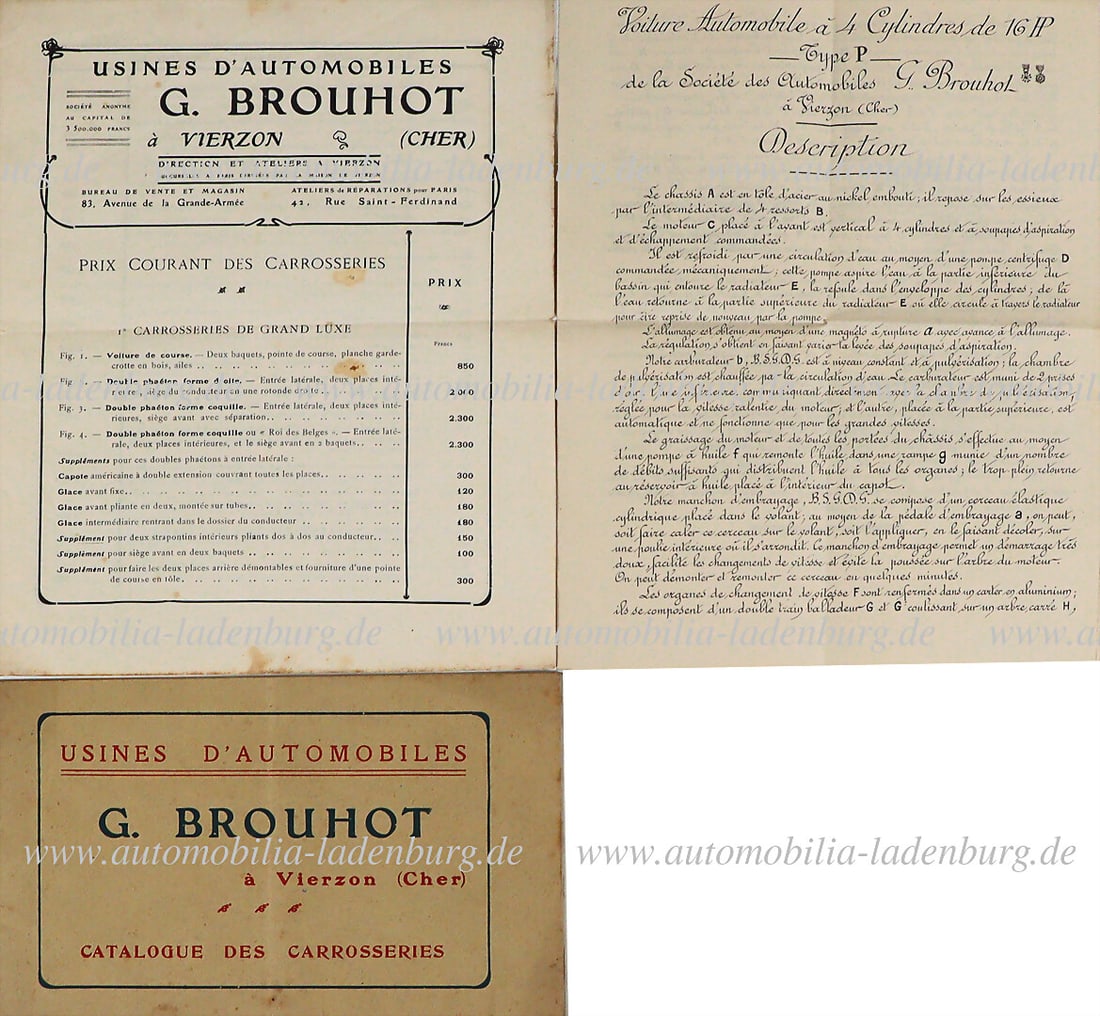 USINES D'AUTOMOBILES
SOCIÉTÉ ANONYME
AU CAPITAL DE
3 500.000 FRANCS
G. BROUHOT
à VIERZON (CHER)
DIRECTION ET ATELIERS A VIERZON
BUREAU DE VENTE ET MAGASIN
83, Avenue de la Grande-Armée
ATELIERS de RÉPARATIONS pour PARIS
42, Rue Saint-Ferdinand
PRIX COURANT DES CARROSSERIES
PRIX
1º CARROSSERIES DE GRAND LUXE
Francs
Fig. 1. — Voiture de course. — Deux baquets, pointe de course, planche garde-
crotte en bois, ailes .. .. 850
Fig. — Double phaéton forme d — Entrée latérale, deux places inté-
rieures, siège du conducteur en une rotonde droite 2 000
Fig. 3. — Double phaéton forme coquille. — Entrée latérale, deux places inté-
rieures, siège avant avec séparation.. .. 2.300
Fig. 4. — Double phaéton forme coquille ou « Roi des Belges ». — Entrée laté-
rale, deux places intérieures, et le siège avant en 2 baquets.. .. 2.300
Suppléments pour ces doubles phaétons à entrée latérale :
Capote américaine à double extension couvrant toutes les places.. .. 300
Glace avant fixe.. .. 120
Glace avant pliante en deux, montée sur tubes.. .. 180
Glace intermédiaire rentrant dans le dossier du conducteur .. .. 180
Supplément pour deux strapontins intérieurs pliants dos à dos au conducteur.. .. 150
Supplément pour siège avant en deux baquets .. .. 100
Supplément pour faire les deux places arrière démontables et fourniture d'une pointe
de course en tôle.. .. 300
Voiture Automobile à 4 Cylindres de 16 HP
— Type P —
de la Société des Automobiles G. Brouhot
à Vierzon (Cher)
Description
Le chassis A est en tôle d'acier au nickel embouti ; il repose sur les essieux
par l'intermédiaire de 4 ressorts B.
Le moteur C, placé à l'avant est vertical à 4 cylindres et à soupapes d'aspiration
et d'échappement commandées.
Il est refroidi par une circulation d'eau au moyen d'une pompe centrifuge D
commandée mécaniquement ; cette pompe aspire l'eau à la partie inférieure du
bassin qui entoure le radiateur E, la refoule dans l'enveloppe des cylindres ; de là
l'eau retourne à la partie supérieure du radiateur E où elle circule à travers le radiateur
pour être reprise de nouveau par la pompe.
L'allumage est obtenu au moyen d'une magnéto à rupture a avec avance à l'allumage.
La régulation s'obtient en faisant varier la levée des soupapes d'aspiration.
Notre carburateur b, B.S.G.D.G. est à niveau constant et à pulvérisation ; la chambre
de pulvérisation est chauffée par la circulation d'eau. Le carburateur est muni de 2 prises
d'air : l'une inférieure, communiquant directement avec la chambre de pulvérisation,
réglée pour la vitesse ralentie du moteur, et l'autre, placée à la partie supérieure, est
automatique et ne fonctionne que pour les grandes vitesses.
Le graissage du moteur et de toutes les portées du châssis s'effectue au moyen
d'une pompe à huile f qui remonte l'huile dans une rampe g munie d'un nombre
de débits suffisants qui distribuent l'huile à tous les organes ; le trop plein retourne
au réservoir à huile placé à l'intérieur du capot.
Notre manchon d'embrayage, B.S.G.D.G. se compose d'un cerceau élastique
cylindrique placé dans le volant ; au moyen de la pédale d'embrayage a, on peut,
soit faire caler ce cerceau sur le volant, soit l'appliquer, en le faisant décoler, sur
une poulie intérieure où il s'arrondit. Ce manchon d'embrayage permet un démarrage très
doux, facilite les changements de vitesse et évite la poussée sur l'arbre du moteur.
On peut démonter et remonter ce cerceau en quelques minutes.
Les organes de changement de vitesse F sont renfermés dans un carter en aluminium ;
ils se composent d'un double train balladeur G et G' coulissant sur un arbre carré H,
USINES D'AUTOMOBILES
G. BROUHOT
à Vierzon (Cher)
CATALOGUE DES CARROSSERIES
www.automobilia-ladenburg.de
www.automobilia-ladenburg.de